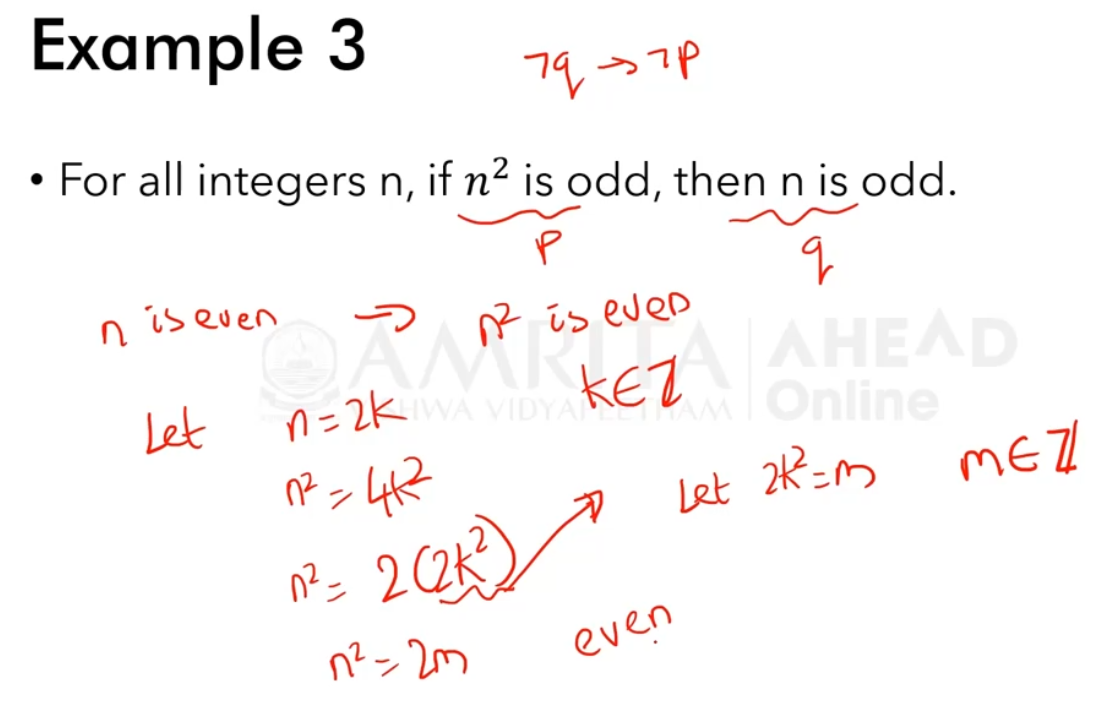 Example 3
¬q → ¬p
• For all integers n, if n² is odd, then n is odd.
p q
n is even → n² is even
AMRITA AHEAD
VISHWA VIDYAPEETHAM Online
k∈ℤ
Let n = 2k
n² = 4k² Let 2k² = m m∈ℤ
n² = 2(2k²)
n² = 2m even